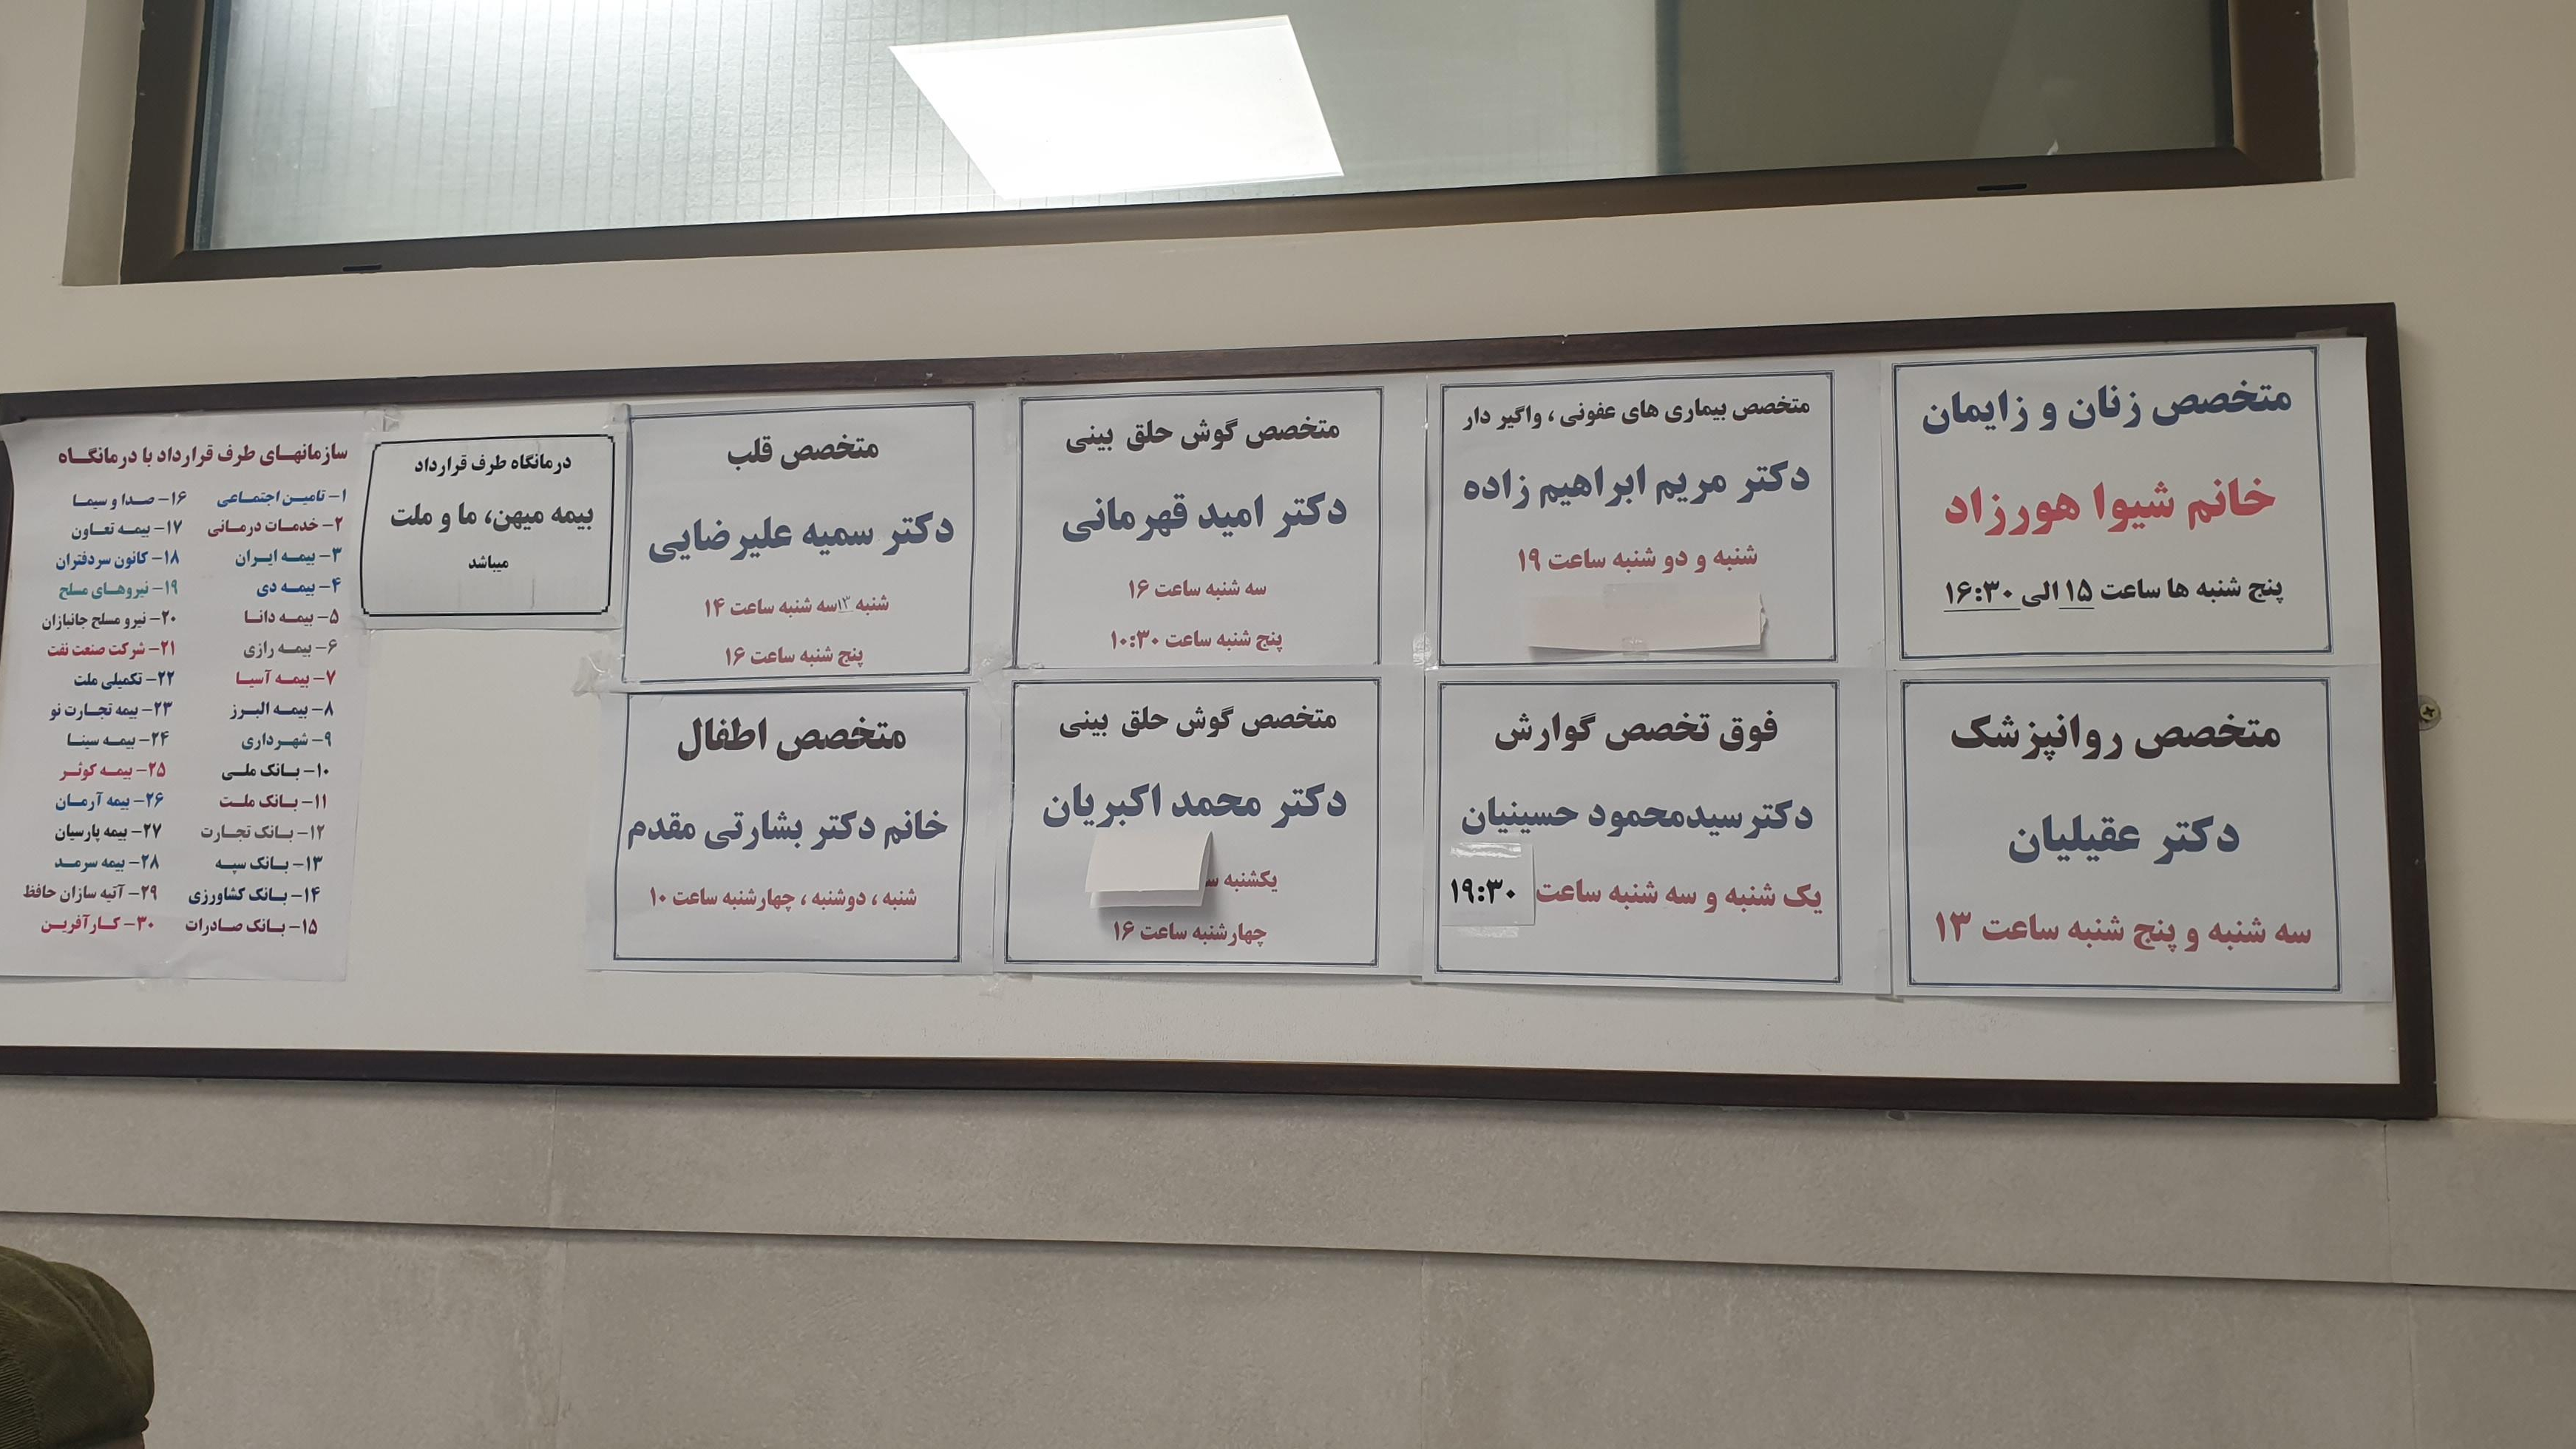 متخصص زنان و زایمان
خانم شیوا هورزاد
پنج شنبه ها ساعت ۱۵ الی ۱۶:۳۰
متخصص بیماری های عفونی ، واگیر دار
دکتر مریم ابراهیم زاده
شنبه و دو شنبه ساعت ۱۹
متخصص گوش حلق بینی
دکتر امید قهرمانی
سه شنبه ساعت ۱۶
پنج شنبه ساعت ۱۰:۳۰
متخصص قلب
دکتر سمیه علیرضایی
شنبه ۱۳ سه شنبه ساعت ۱۴
پنج شنبه ساعت ۱۶
متخصص روانپزشک
دکتر عقیلیان
سه شنبه و پنج شنبه ساعت ۱۳
فوق تخصص گوارش
دکتر سیدمحمود حسینیان
یک شنبه و سه شنبه ساعت ۱۹:۳۰
متخصص گوش حلق بینی
دکتر محمد اکبریان
یکشنبه
چهارشنبه ساعت ۱۶
متخصص اطفال
خانم دکتر بشارتی مقدم
شنبه ، دوشنبه ، چهارشنبه ساعت ۱۰
درمانگاه طرف قرارداد
بیمه میهن، ما و ملت
میباشد
سازمانهای طرف قرارداد با درمانگاه
۱- تامین اجتماعی
۲- خدمات درمانی
۳- بیمه ایران
۴- بیمه دی
۵- بیمه دانا
۶- بیمه رازی
۷- بیمه آسیا
۸- بیمه البرز
۹- شهرداری
۱۰- بانک ملی
۱۱- بانک ملت
۱۲- بانک تجارت
۱۳- بانک سپه
۱۴- بانک کشاورزی
۱۵- بانک صادرات
۱۶- صدا و سیما
۱۷- بیمه تعاون
۱۸- کانون سردفتران
۱۹- نیروهای مسلح
۲۰- نیرو مسلح جانبازان
۲۱- شرکت صنعت نفت
۲۲- تکمیلی ملت
۲۳- بیمه تجارت نو
۲۴- بیمه سینا
۲۵- بیمه کوثر
۲۶- بیمه آرمان
۲۷- بیمه پارسیان
۲۸- بیمه سرمد
۲۹- آتیه سازان حافظ
۳۰- کارآفرین